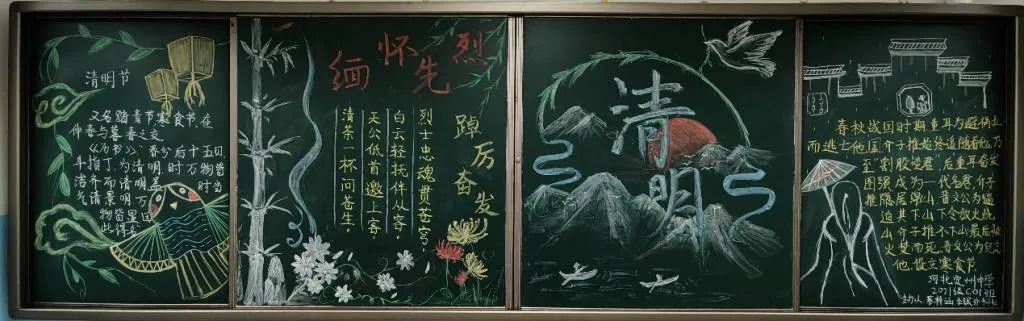 清明节
又名踏青节寒食节在
仲春与暮春之交
《历书》:春分后十五日
斗指丁,为清明,时万物皆
洁齐而清明
物皆
缅怀先烈
踔厉奋发
烈士忠魂贯苍穹,
白云轻托伴从容,
天公低首邀上客,
清茶一杯问苍生。
清明
春秋战国时期重耳为避祸乱
而逃亡他国介子推始终追随着他,乃
至"割股啖君",后重耳奋发
图强成为一代名君,介子
推隐居绵山,晋文公为逼
迫其下山下令放火烧
山介子推不下山最后被
火焚而死,晋文公为纪念
他,设立寒食节
河北定州中学
2021级C01班